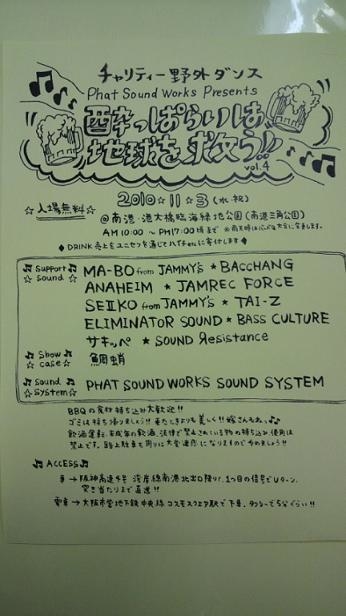 チャリティー野外ダンス
Phat Sound Works Presents
酔っぱらいは、
地球を、救う!!
vol.4
☆入場無料☆
2010☆11☆3(水・祝)
@南港・港大橋臨海緑地公園(南港三角公園)
AM10:00 ~ PM17:00頃まで
◆DRINK売上をユニセフを通じてハイチetc.に寄付します◆
♫Support♫
☆Sound☆
MA-BO from JAMMY's ★ BACCHANG
ANAHEIM ★ JAMREC FORCE
SEIIKO from JAMMY's ★ TAI-Z
ELIMINATOR SOUND ★ BASS CULTURE
サキッペ ★ SOUND Яesistance
♫Show♫
☆case☆
鯛蛸
♫Sound♫
☆System☆
PHAT SOUND WORKS SOUND SYSTEM
BBQの食材持ち込み大歓迎!!
ゴミは持ち帰りましょう!! 来たときよりも美しく!!
飲酒運転、未成年の飲酒、法律で禁止されている物の持ち込み・使用は
禁止です。路上駐車も周りに大変迷惑になりますのでやめましょう!!
♫ACCESS♫
車→阪神高速4号 湾岸線南港北出口降り、1つ目の信号でUターン、
突き当たりまで直進!!
電車→大阪市営地下鉄中央線コスモスクエア駅で下車、タクシーで5分ぐらい!!